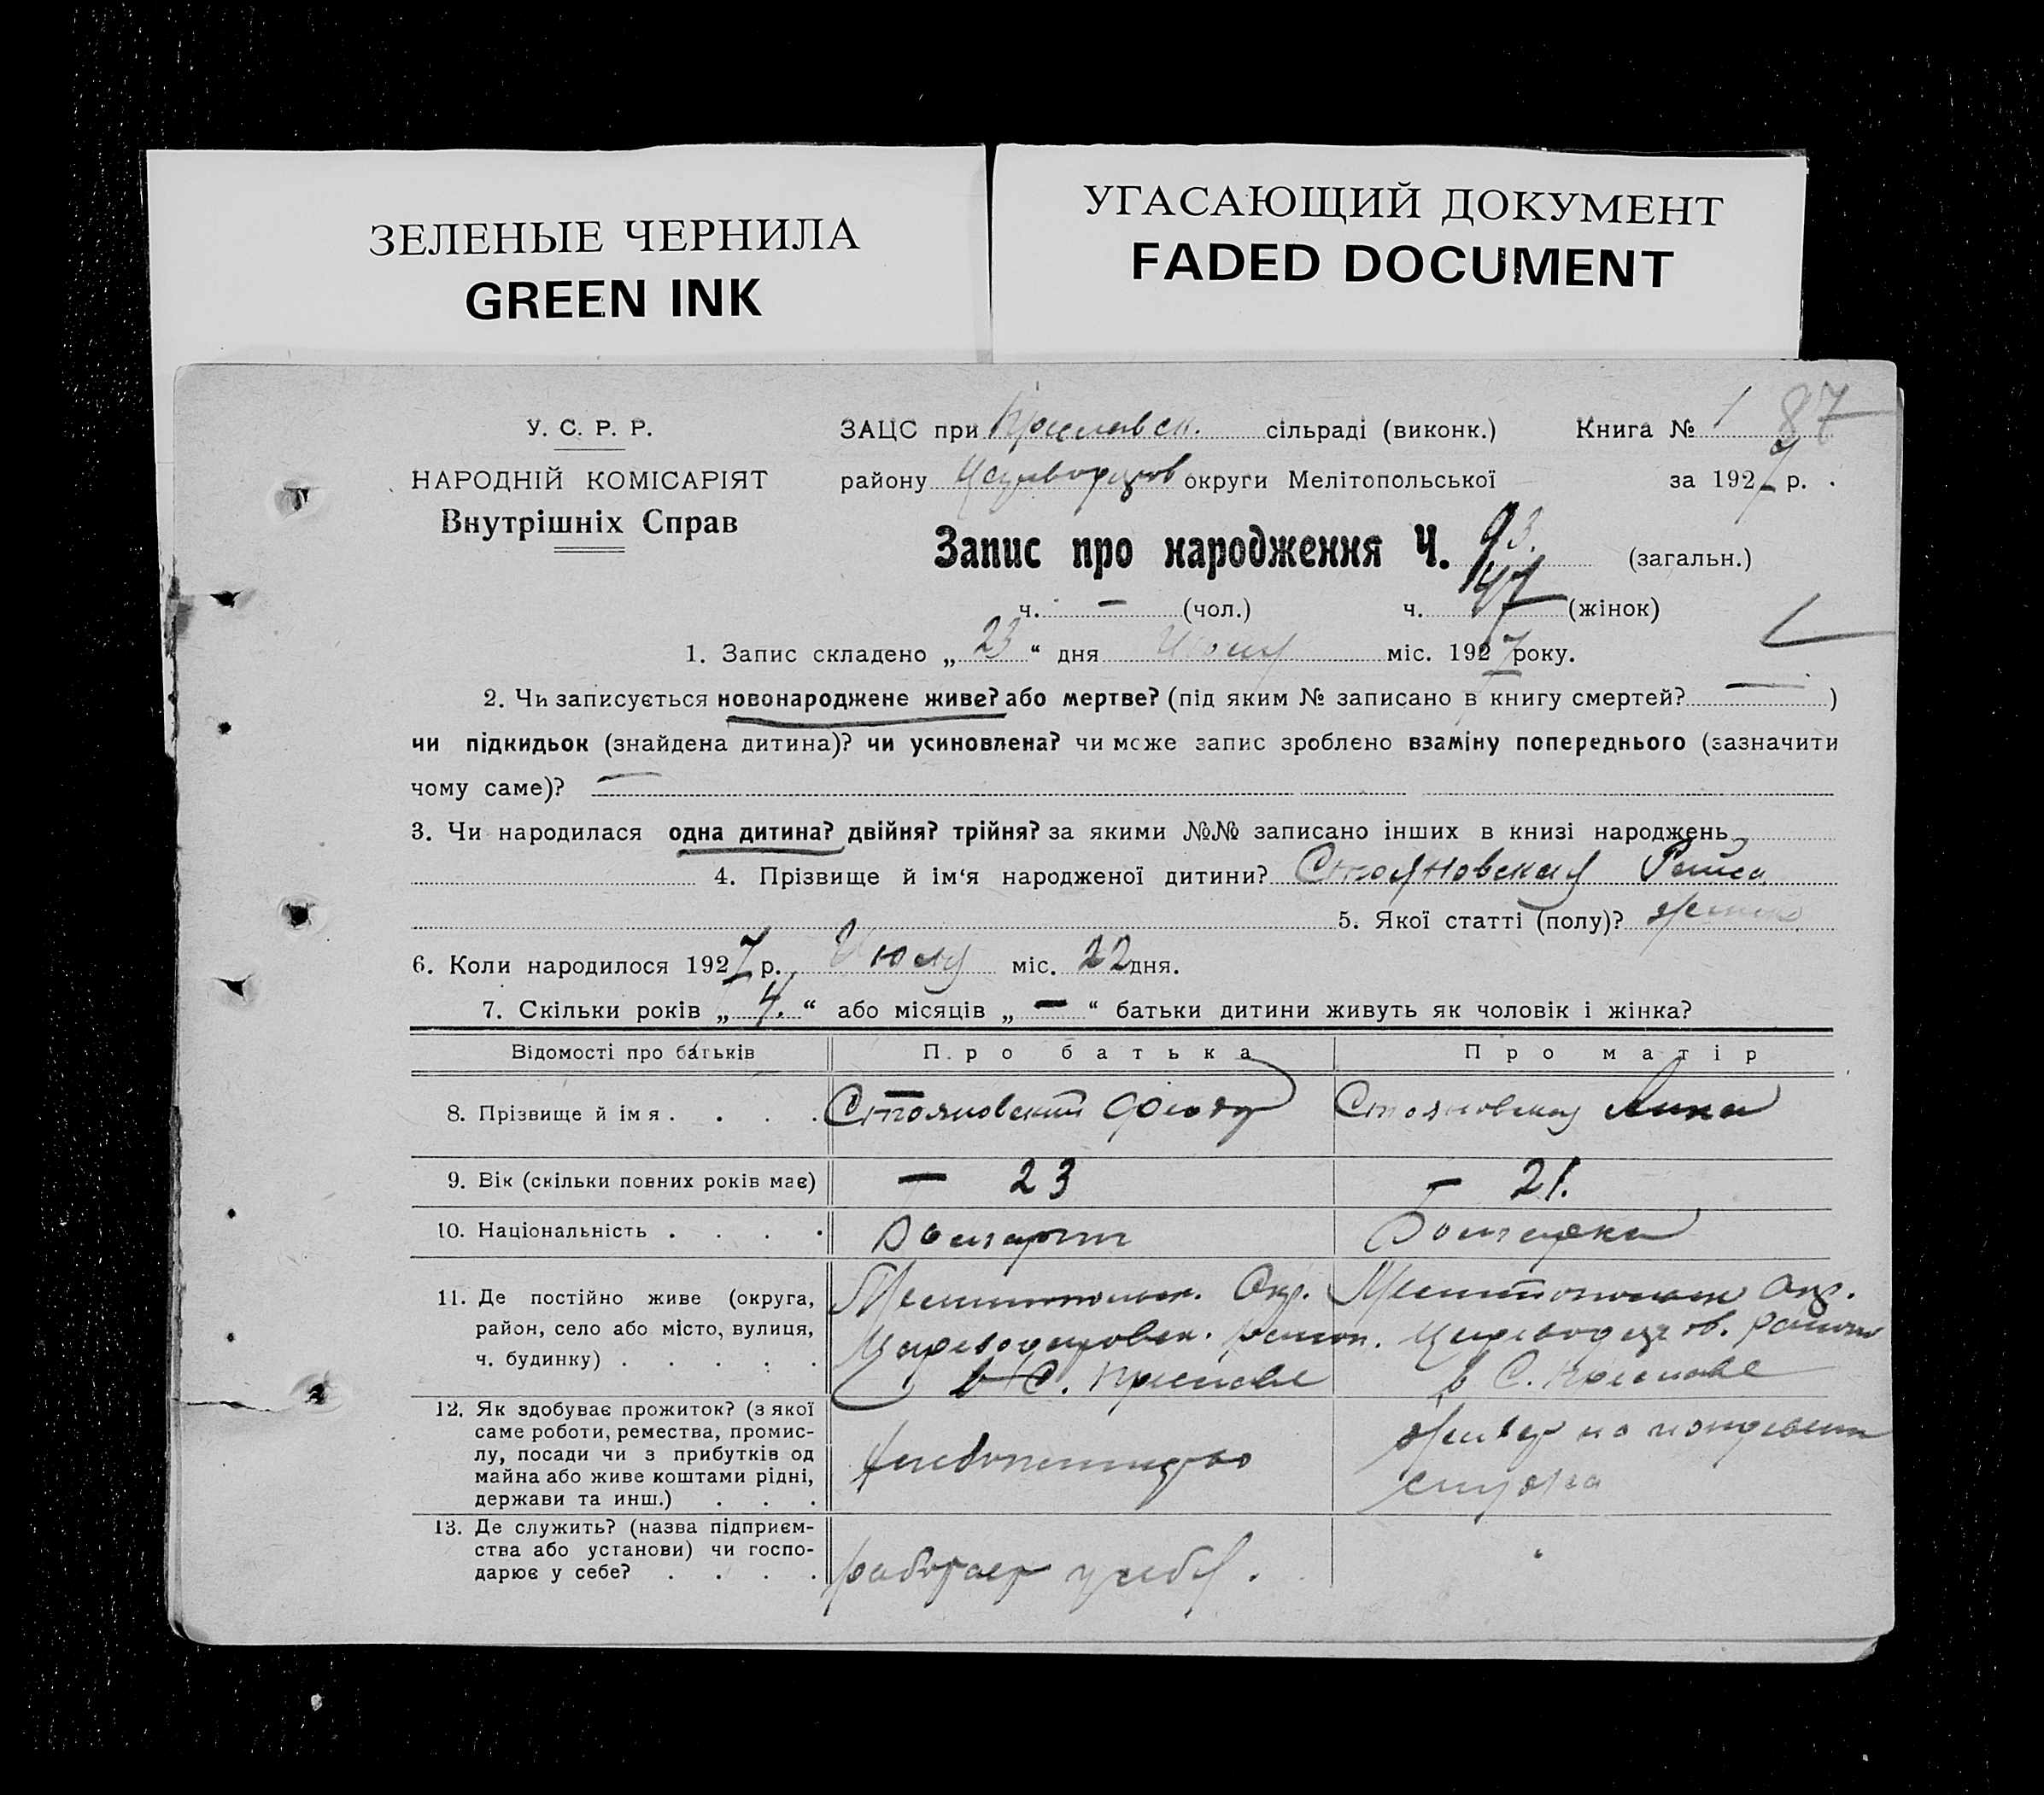 ЗЕЛЕНЫЕ ЧЕРНИЛА
GREEN INK
УГАСАЮЩИЙ ДОКУМЕНТ
FADED DOCUMENT
У. С. Р. Р.
НАРОДНІЙ КОМІСАРІЯТ
Внутрішніх Справ
ЗАЦС при сільраді (виконк.) Книга № 1 87
району округи Мелітопольської за 1927 р.
Запис про народження Ч. 93. (загальн.)
ч. — (чол.) ч. 47 (жінок)
1. Запис складено „ 23 “ дня міс. 1927 року.
2. Чи записується новонароджене живе? або мертве? (під яким № записано в книгу смертей? — )
чи підкидьок (знайдена дитина)? чи усиновлена? чи може запис зроблено взаміну попереднього (зазначити
чому саме)? —
3. Чи народилася одна дитина? двійня? трійня? за якими №№ записано інших в книзі народжень
4. Прізвище й ім‘я народженої дитини? Стояновская Раиса
5. Якої статті (полу)?
6. Коли народилося 1927 р. Июля міс. 22 дня.
7. Скільки років „ 4. “ або місяців „ — “ батьки дитини живуть як чоловік і жінка?
Відомості про батьків Про батька Про матір
8. Прізвище й імя . . . . Стояновский Стояновская Анна
9. Вік (скільки повних років має) — 23 — 21.
10. Національність . . . . Болгарин Болгарка
11. Де постійно живе (округа, Мелитопольск. Окр. Мелитопольск Окр.
район, село або місто, вулиця, Цареводаровск. район. Цареводаров. район
ч. будинку) . . . . . в С. Преславе в С. Преславе
12. Як здобуває прожиток? (з якої
саме роботи, ремества, промис-
лу, посади чи з прибутків од
майна або живе коштами рідні,
держави та инш.) . . . хлебопашество живет на иждивении
мужа
13. Де служить? (назва підприєм-
ства або установи) чи госпо-
дарює у себе? . . . . работает у себя.